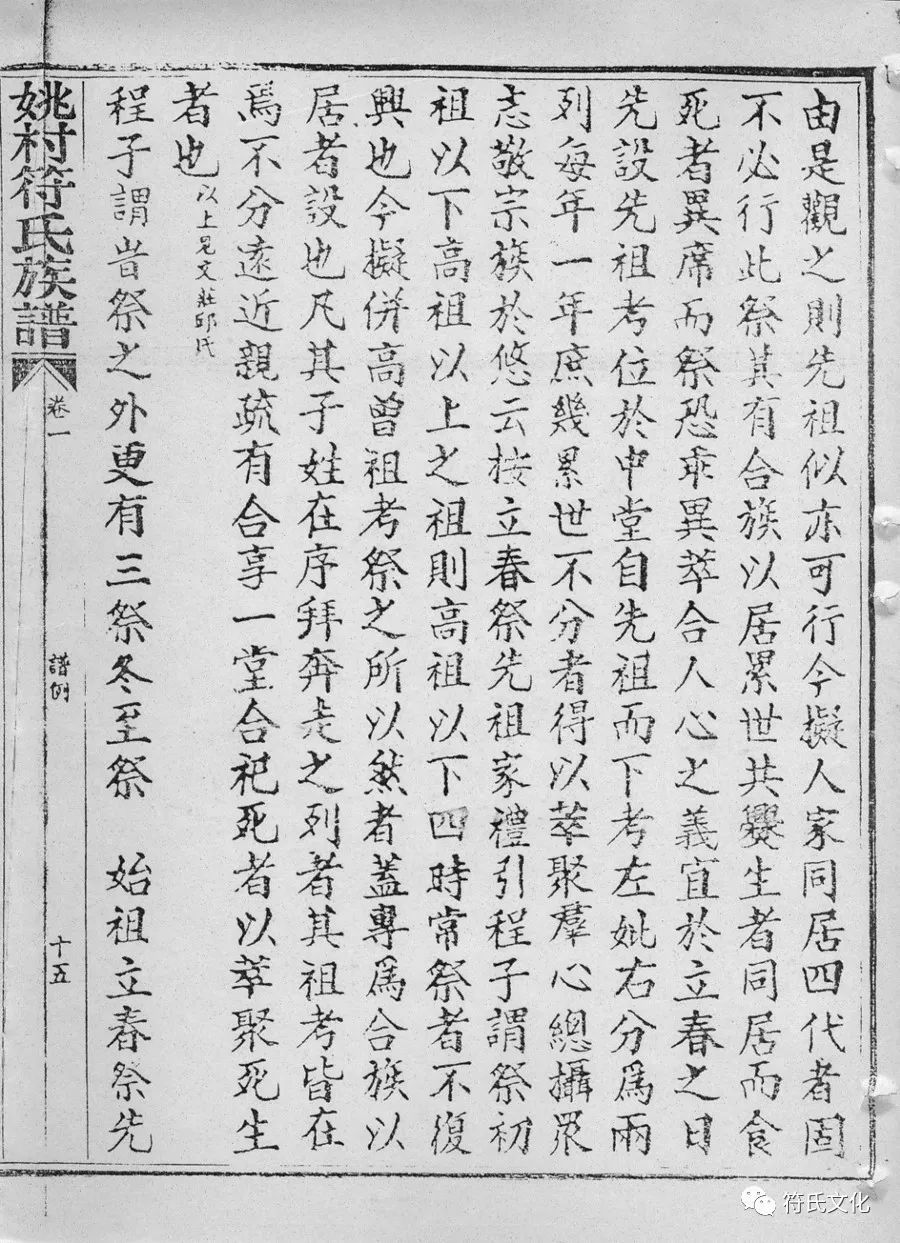 由是觀之則先祖似亦可行今擬人家同居四代者固
不必行此祭其有合族以居累世共爨生者同居而食
死者異席而祭恐乖異萃合人心之義宜於立春之日
先設先祖考位於中堂自先祖而下考左妣右分爲兩
列每年一年庶幾累世不分者得以萃聚羣心總攝眾
志敬宗族於悠云按立春祭先祖家禮引程子謂祭初
祖以下高祖以上之祖則高祖以下四時常祭者不復
興也今擬併高曾祖考祭之所以然者蓋專爲合族以
居者設也凡其子姓在序拜奔走之列者其祖考皆在
焉不分遠近親疏有合享一堂合祀死者以萃聚死生
者也 以上見文莊邱氏
程子謂皆祭之外更有三祭冬至祭 始祖立春祭先
姚村符氏族譜 卷一 譜例 十五
符氏文化